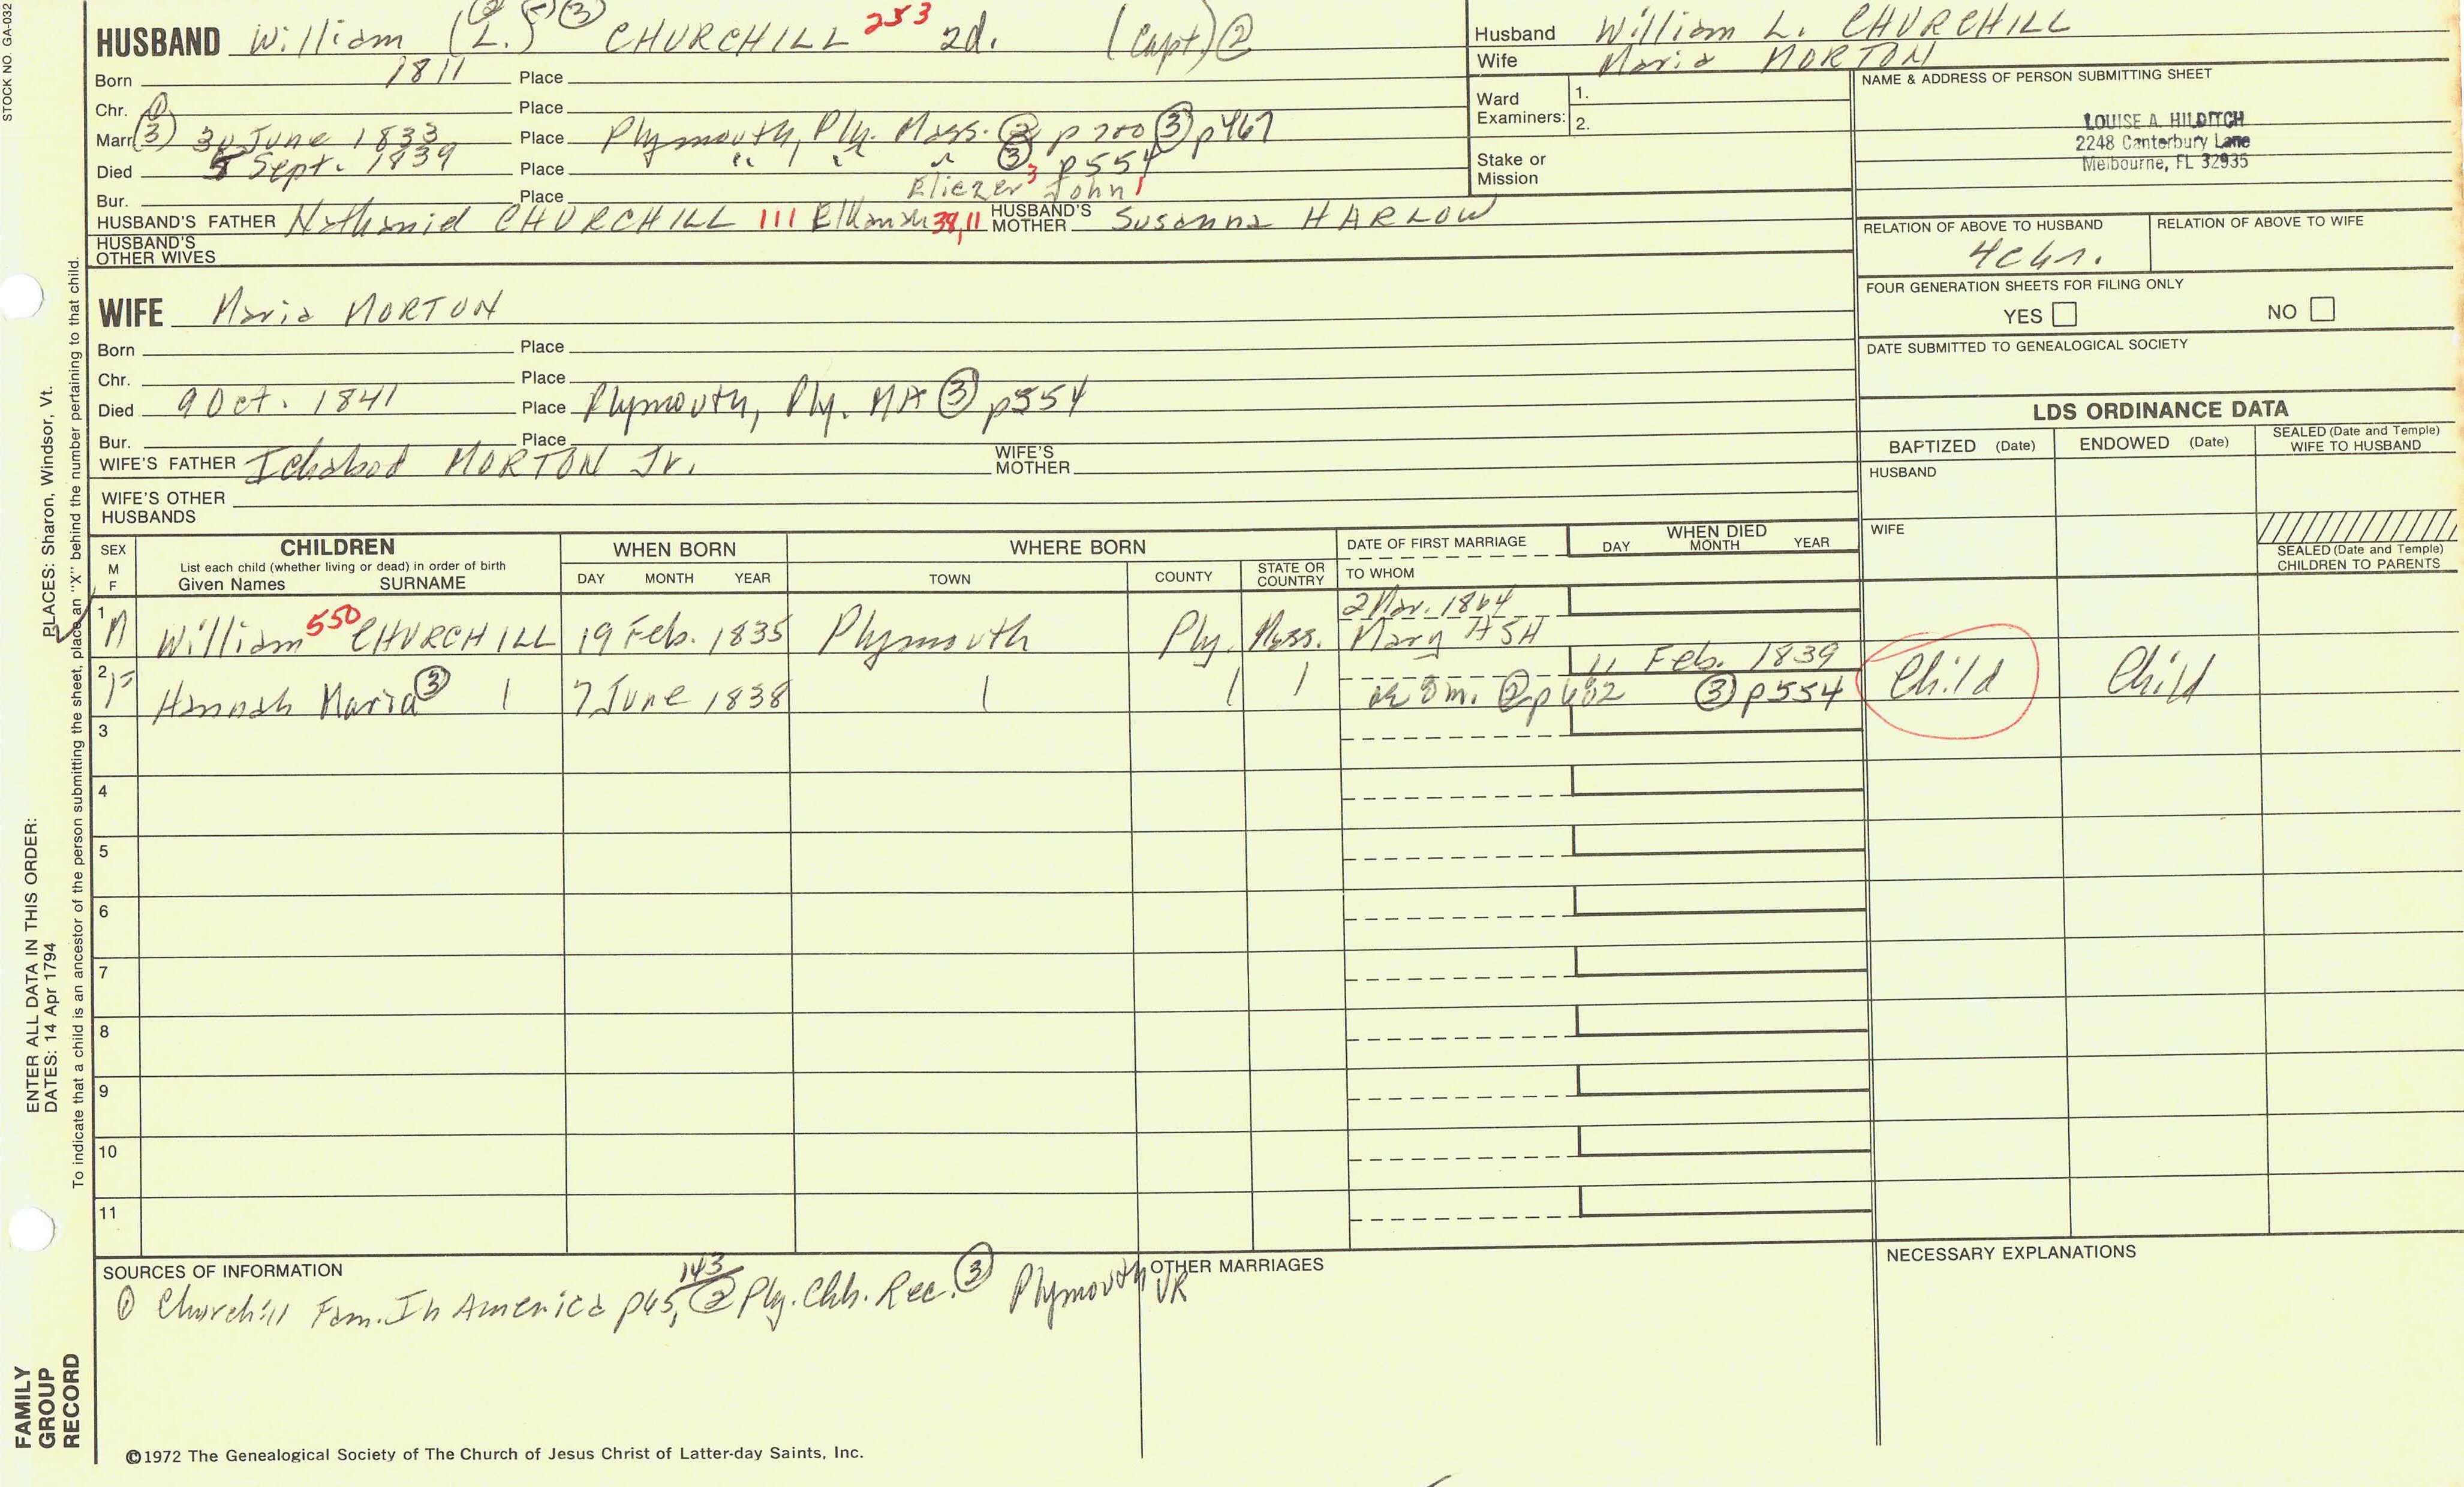 STOCK NO. GA-032
HUSBAND William (L.) ③ CHURCHILL 253 2d. (Capt) ②
Born 1811 Place
Chr. ① Place
Marr (3) 30 June 1833 Place Plymouth, Ply. Mass. ② p 200 ③ p467
Died 5 Sept. 1839 Place " " " ③ p554
Bur. Place
Eliezer 3 John 1
HUSBAND'S FATHER Nathaniel CHURCHILL 111 Elkanah 39, 11 HUSBAND'S MOTHER Susanna HARLOW
HUSBAND'S OTHER WIVES
WIFE Maria MORTON
Born Place
Chr. Place
Died 9 Oct. 1841 Place Plymouth, Ply. MA ③ p554
Bur. Place
WIFE'S FATHER Ichabod MORTON Jr. WIFE'S MOTHER
WIFE'S OTHER HUSBANDS
Husband William L. CHURCHILL
Wife Maria MORTON
Ward Examiners: 1.
2.
Stake or Mission
NAME & ADDRESS OF PERSON SUBMITTING SHEET
LOUISE A. HILDITCH
2248 Canterbury Lane
Melbourne, FL 32935
RELATION OF ABOVE TO HUSBAND RELATION OF ABOVE TO WIFE
FOUR GENERATION SHEETS FOR FILING ONLY
YES NO
DATE SUBMITTED TO GENEALOGICAL SOCIETY
LDS ORDINANCE DATA
BAPTIZED (Date) ENDOWED (Date) SEALED (Date and Temple) WIFE TO HUSBAND
HUSBAND
WIFE
SEALED (Date and Temple) CHILDREN TO PARENTS
SEX M F CHILDREN WHEN BORN WHERE BORN DATE OF FIRST MARRIAGE WHEN DIED
List each child (whether living or dead) in order of birth
Given Names SURNAME DAY MONTH YEAR TOWN COUNTY STATE OR COUNTRY TO WHOM DAY MONTH YEAR
2 Mar. 1864
1 M William 550 CHURCHILL 19 Feb. 1835 Plymouth Ply. Mass. Mary ASH
11 Feb. 1839
2 F Hannah Maria ③ 7 June 1838 ae 8 m. ② p682 ③ p554 Child Child
3
4
5
6
7
8
9
10
11
SOURCES OF INFORMATION
143
① Churchill Fam. In America p65, ② Ply. Chh. Rec. ③ Plymouth VR
OTHER MARRIAGES
NECESSARY EXPLANATIONS
©1972 The Genealogical Society of The Church of Jesus Christ of Latter-day Saints, Inc.
FAMILY
GROUP
RECORD
ENTER ALL DATA IN THIS ORDER:
DATES: 14 Apr 1794 PLACES: Sharon, Windsor, Vt.
To indicate that a child is an ancestor of the person submitting the sheet, place an "X" behind the number pertaining to that child.